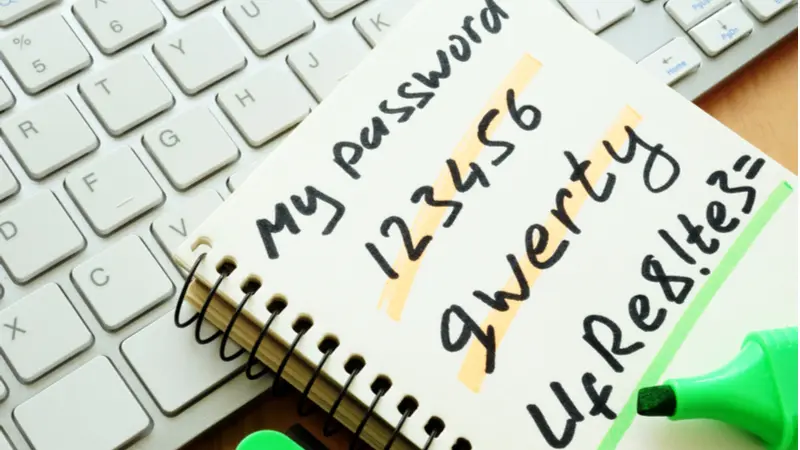 My password
123456
qwerty
UfRe8!te3=
% 5
^ 6
Y
U
K
T
H
J
R
G
F
D
V
C
X
Home
PgUp
PgDn